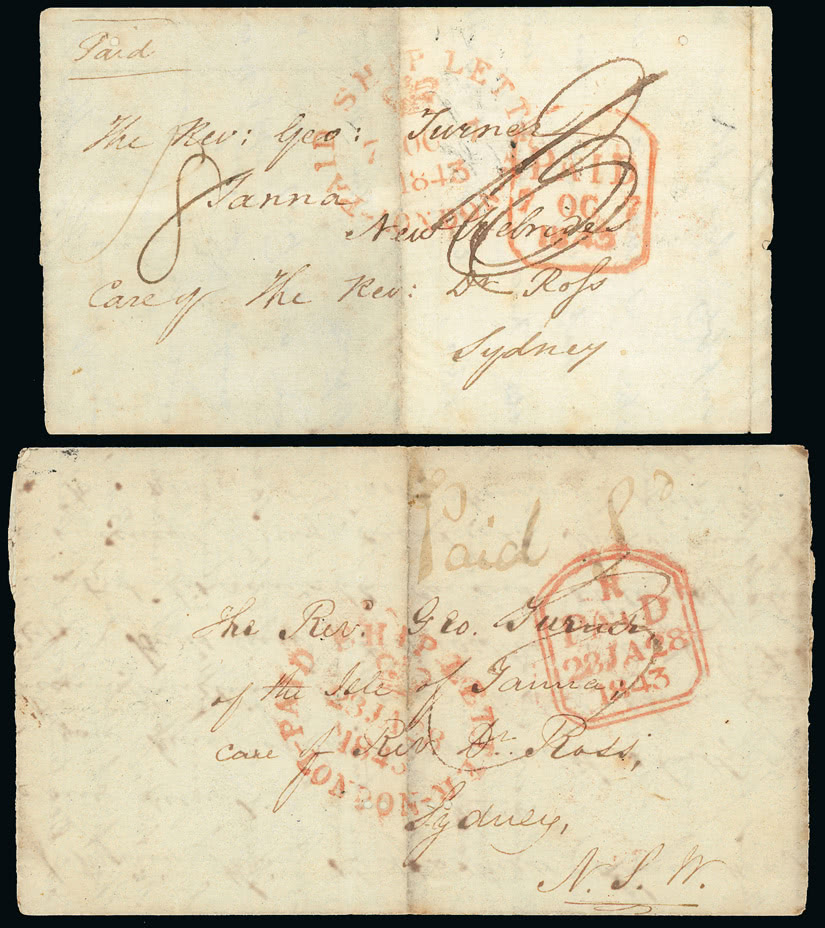 Paid
The Rev: Geo: Turner
8 Tanna
New Hebrides
Care of The Rev: Dr Ross
Sydney.
PAID SHIP LETTER LONDON
7 OC 7
1843
PAID
7 OC 7
1843
Paid 8d
The Revd. Geo. Turner,
of the Isle of Tanna,
care of Revd Dr. Ross,
Sydney,
N. S. W.
PAID SHIP LETTER LONDON
28 JA 28
1843
R
PAID
28 JA 28
1843